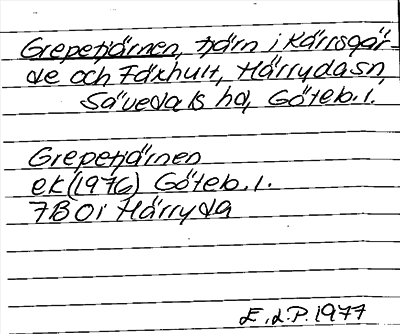 Grepetjärnen, tjärn i Kärrsgär-
de och Fäxhult, Härryda sn,
Sävedals hd, Göteb. l.
Grepetjärnen
ek (1976) Göteb. l.
7B 0i Härryda
E.d.P. 1977